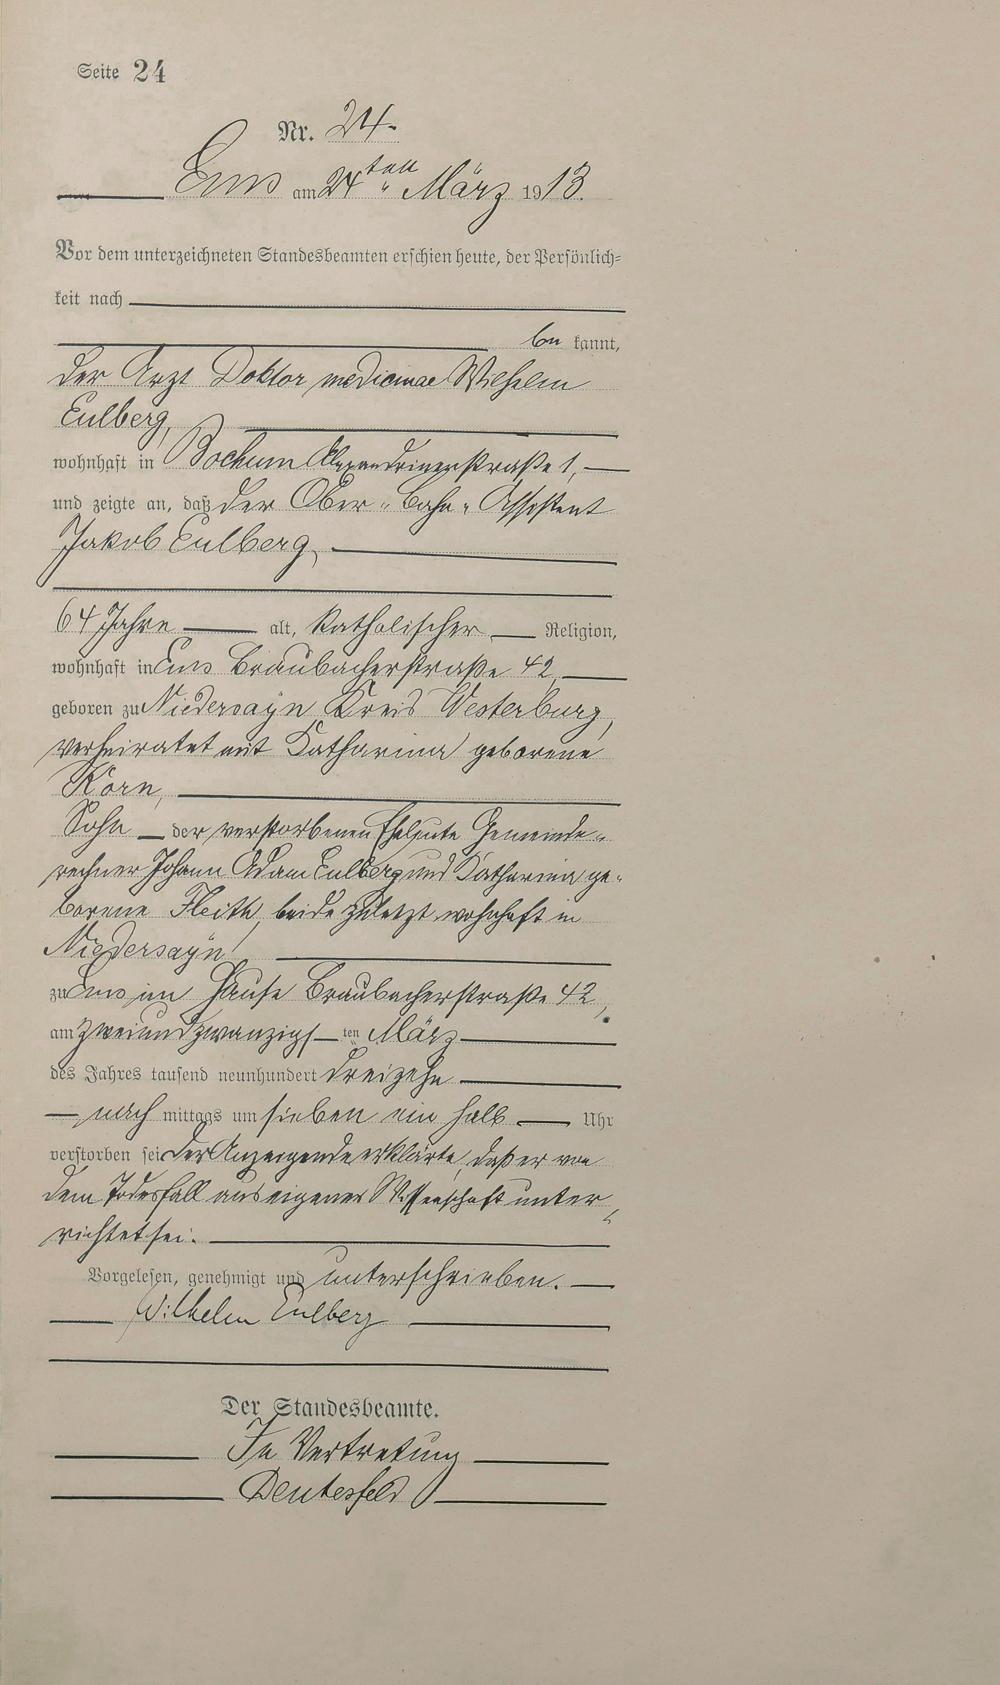 Seite 24
Nr. 24.
Ems am 24ten März 1913.
Vor dem unterzeichneten Standesbeamten erschien heute, der Persönlich=
keit nach
be kannt,
der Arzt Doktor medicinae Wilhelm
Eulberg,
wohnhaft in Bochum Alexandrinenstraße 1,
und zeigte an, daß der Ober-Bahn-Assistent
Jakob Eulberg,
64 Jahre alt, katholischer Religion,
wohnhaft in Ems Braubacherstraße 42
geboren zu Niedersayn Kreis Westerburg,
verheiratet mit Katharina geborene
Korn,
Sohn der verstorbenen Eheleute Gemeinde-
rechner Johann Adam Eulberg und Katharina ge-
borene Fleith, beide zuletzt wohnhaft in
Niedersayn
zu Ems im Hause Braubacherstraße 42,
am zweiundzwanzigsten März
des Jahres tausend neunhundert dreizehn
nach mittags um sieben ein halb Uhr
verstorben sei. Der Anzeigende erklärte, daß er von
dem Todesfall aus eigener Wissenschaft unter
richtet sei.
Vorgelesen, genehmigt und unterschrieben.
Wilhelm Eulberg
Der Standesbeamte.
In Vertretung